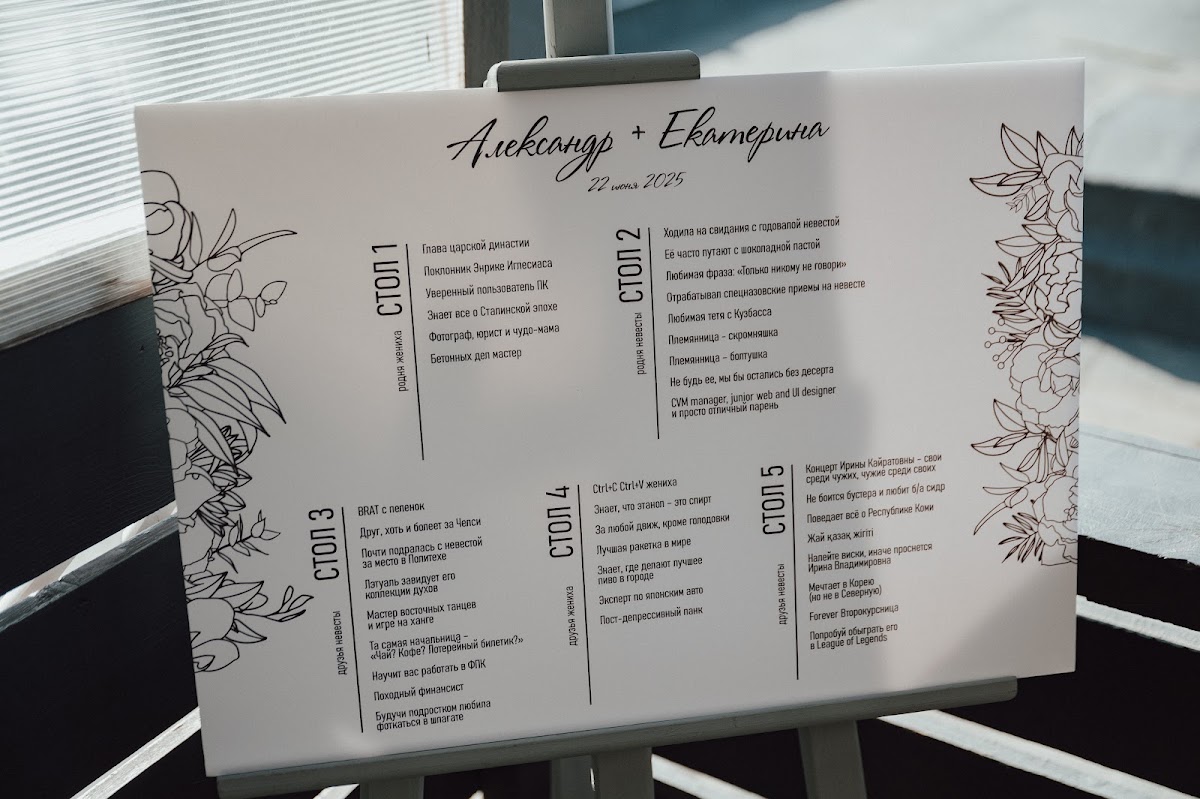 Александр + Екатерина
22 июня 2025
СТОЛ 1
родня жениха
Глава царской династии
Поклонник Энрике Иглесиаса
Уверенный пользователь ПК
Знает все о Сталинской эпохе
Фотограф, юрист и чудо-мама
Бетонных дел мастер
СТОЛ 2
родня невесты
Ходила на свидания с годовалой невестой
Её часто путают с шоколадной пастой
Любимая фраза: «Только никому не говори»
Отрабатывал спецназовские приемы на невесте
Любимая тетя с Кузбасса
Племянница - скромняшка
Племянница - болтушка
Не будь ее, мы бы остались без десерта
CVM manager, junior web and UI designer
и просто отличный парень
СТОЛ 3
друзья невесты
BRAT с пеленок
Друг, хоть и болеет за Челси
Почти подралась с невестой
за место в Политехе
Лэтуаль завидует его
коллекции духов
Мастер восточных танцев
и игре на ханге
Та самая начальница -
«Чай? Кофе? Лотерейный билетик?»
Научит вас работать в ФПК
Походный финансист
Будучи подростком любила
фоткаться в шпагате
СТОЛ 4
друзья жениха
Ctrl+C Ctrl+V жениха
Знает, что этанол - это спирт
За любой движ, кроме голодовки
Лучшая ракетка в мире
Знает, где делают лучшее
пиво в городе
Эксперт по японским авто
Пост-депрессивный панк
СТОЛ 5
друзья невесты
Концерт Ирины Кайратовны - свои
среди чужих, чужие среди своих
Не боится бустера и любит б/а сидр
Поведает всё о Республике Коми
Жай қазақ жігіті
Налейте виски, иначе проснется
Ирина Владимировна
Мечтает в Корею
(но не в Северную)
Forever Второкурсница
Попробуй обыграть его
в League of Legends